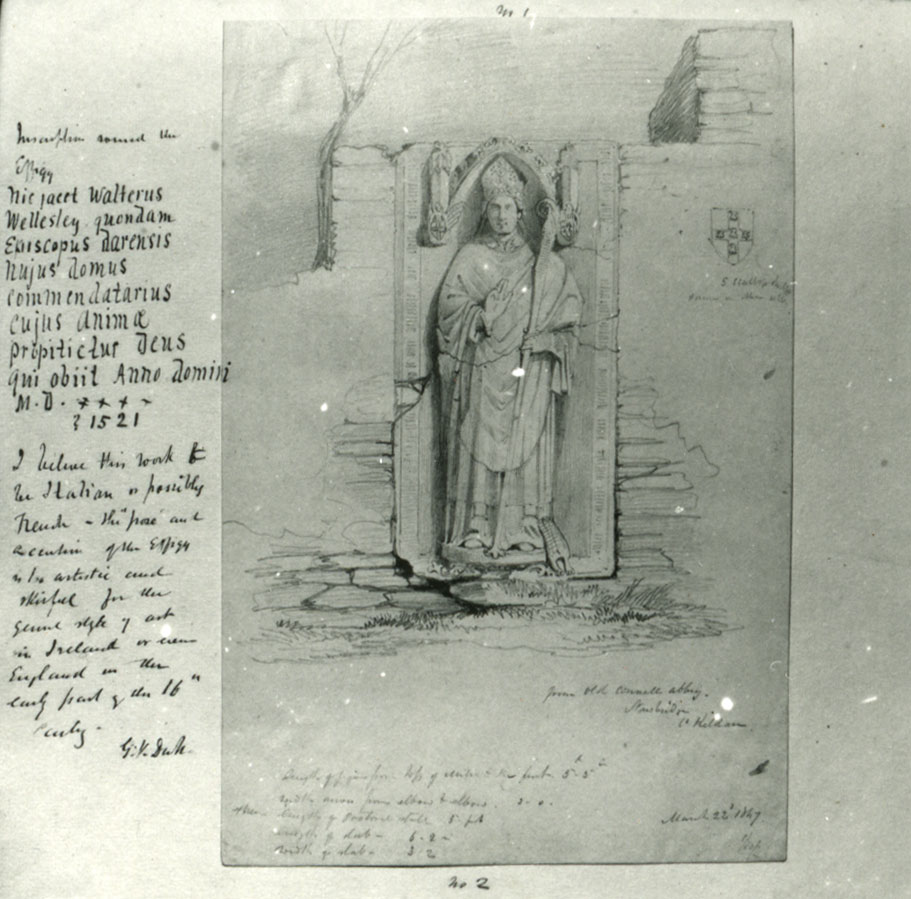 No 1
Inscription round the
Effigy
hic jacet Walterus
Wellesley quondam
Episcopus Darensis
hujus domus
commendatarius
cujus animæ
propitietur Deus
qui obiit Anno Domini
M.D.
? 1521
I believe this work to
be Italian or possibly
French - the pose and
execution of the Effigy
is too artistic and
skilful for the
style of art
in Ireland or even
England in the
early part of the 16"
G.V. Du
5
from Old Connell abbey.
Newbridge
Co Kildare
Length of figure from top of mitre to the feet 5-5
width across from elbow to elbow 2-0
length of Pastoral staff 5 ft
length of slab - 6-2-
width of slab - 3-2
March 22d 1847
No 2